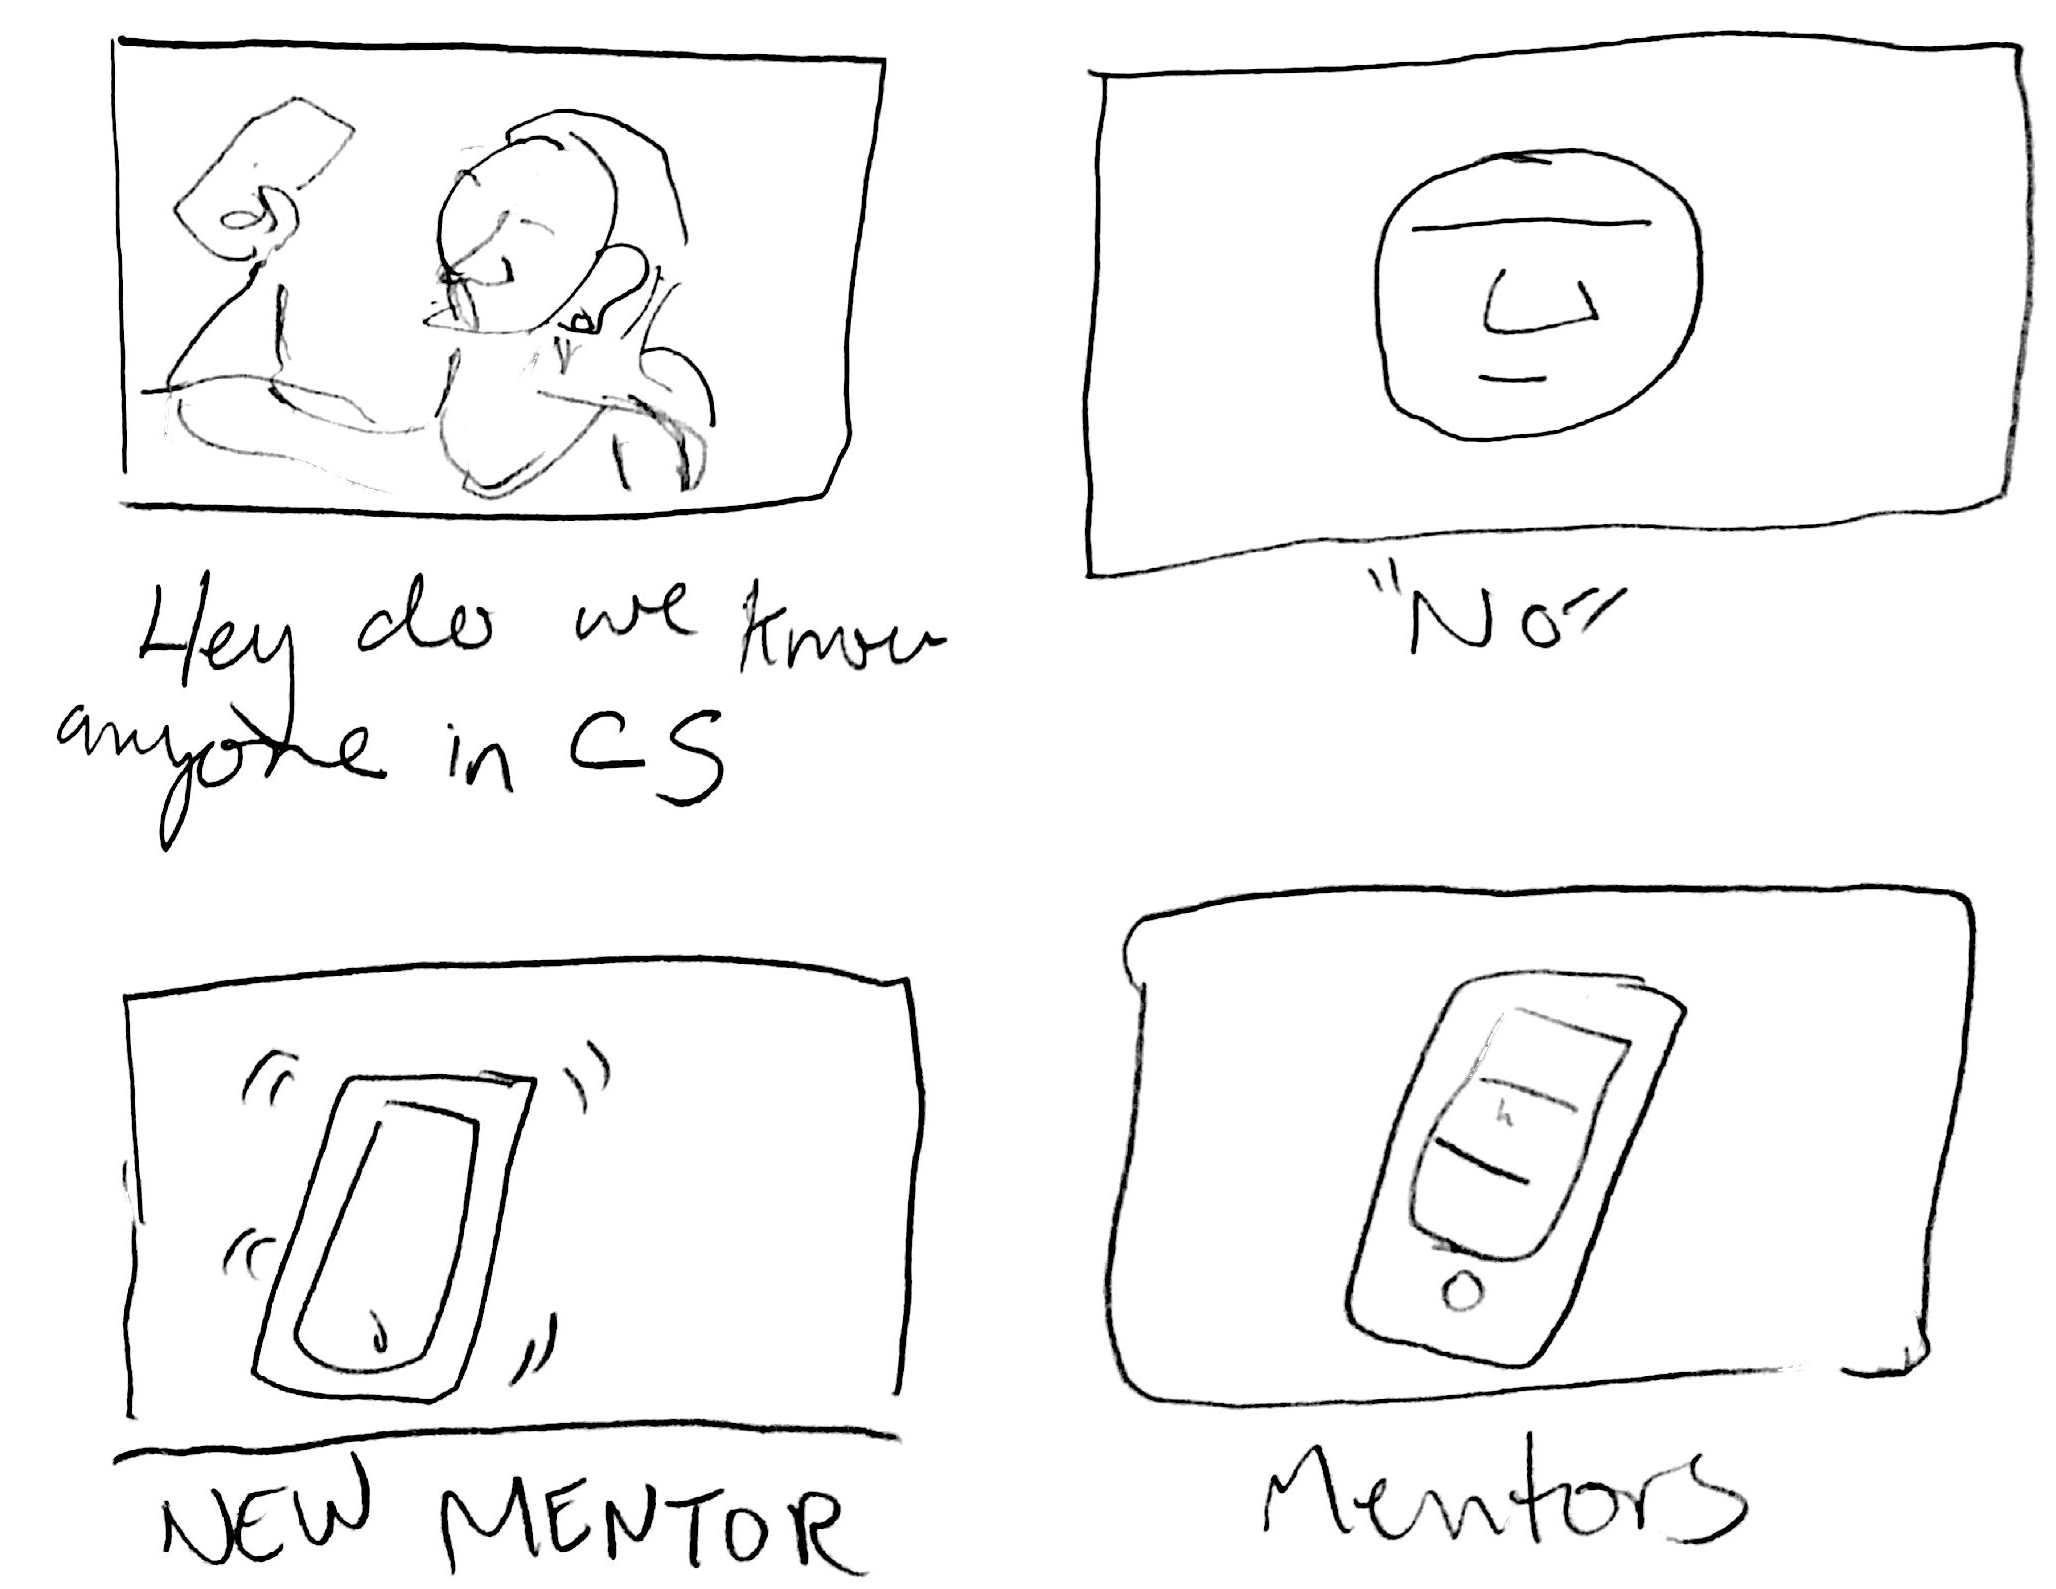 Hey do we know
anyone in CS
"No"
NEW MENTOR
Mentors